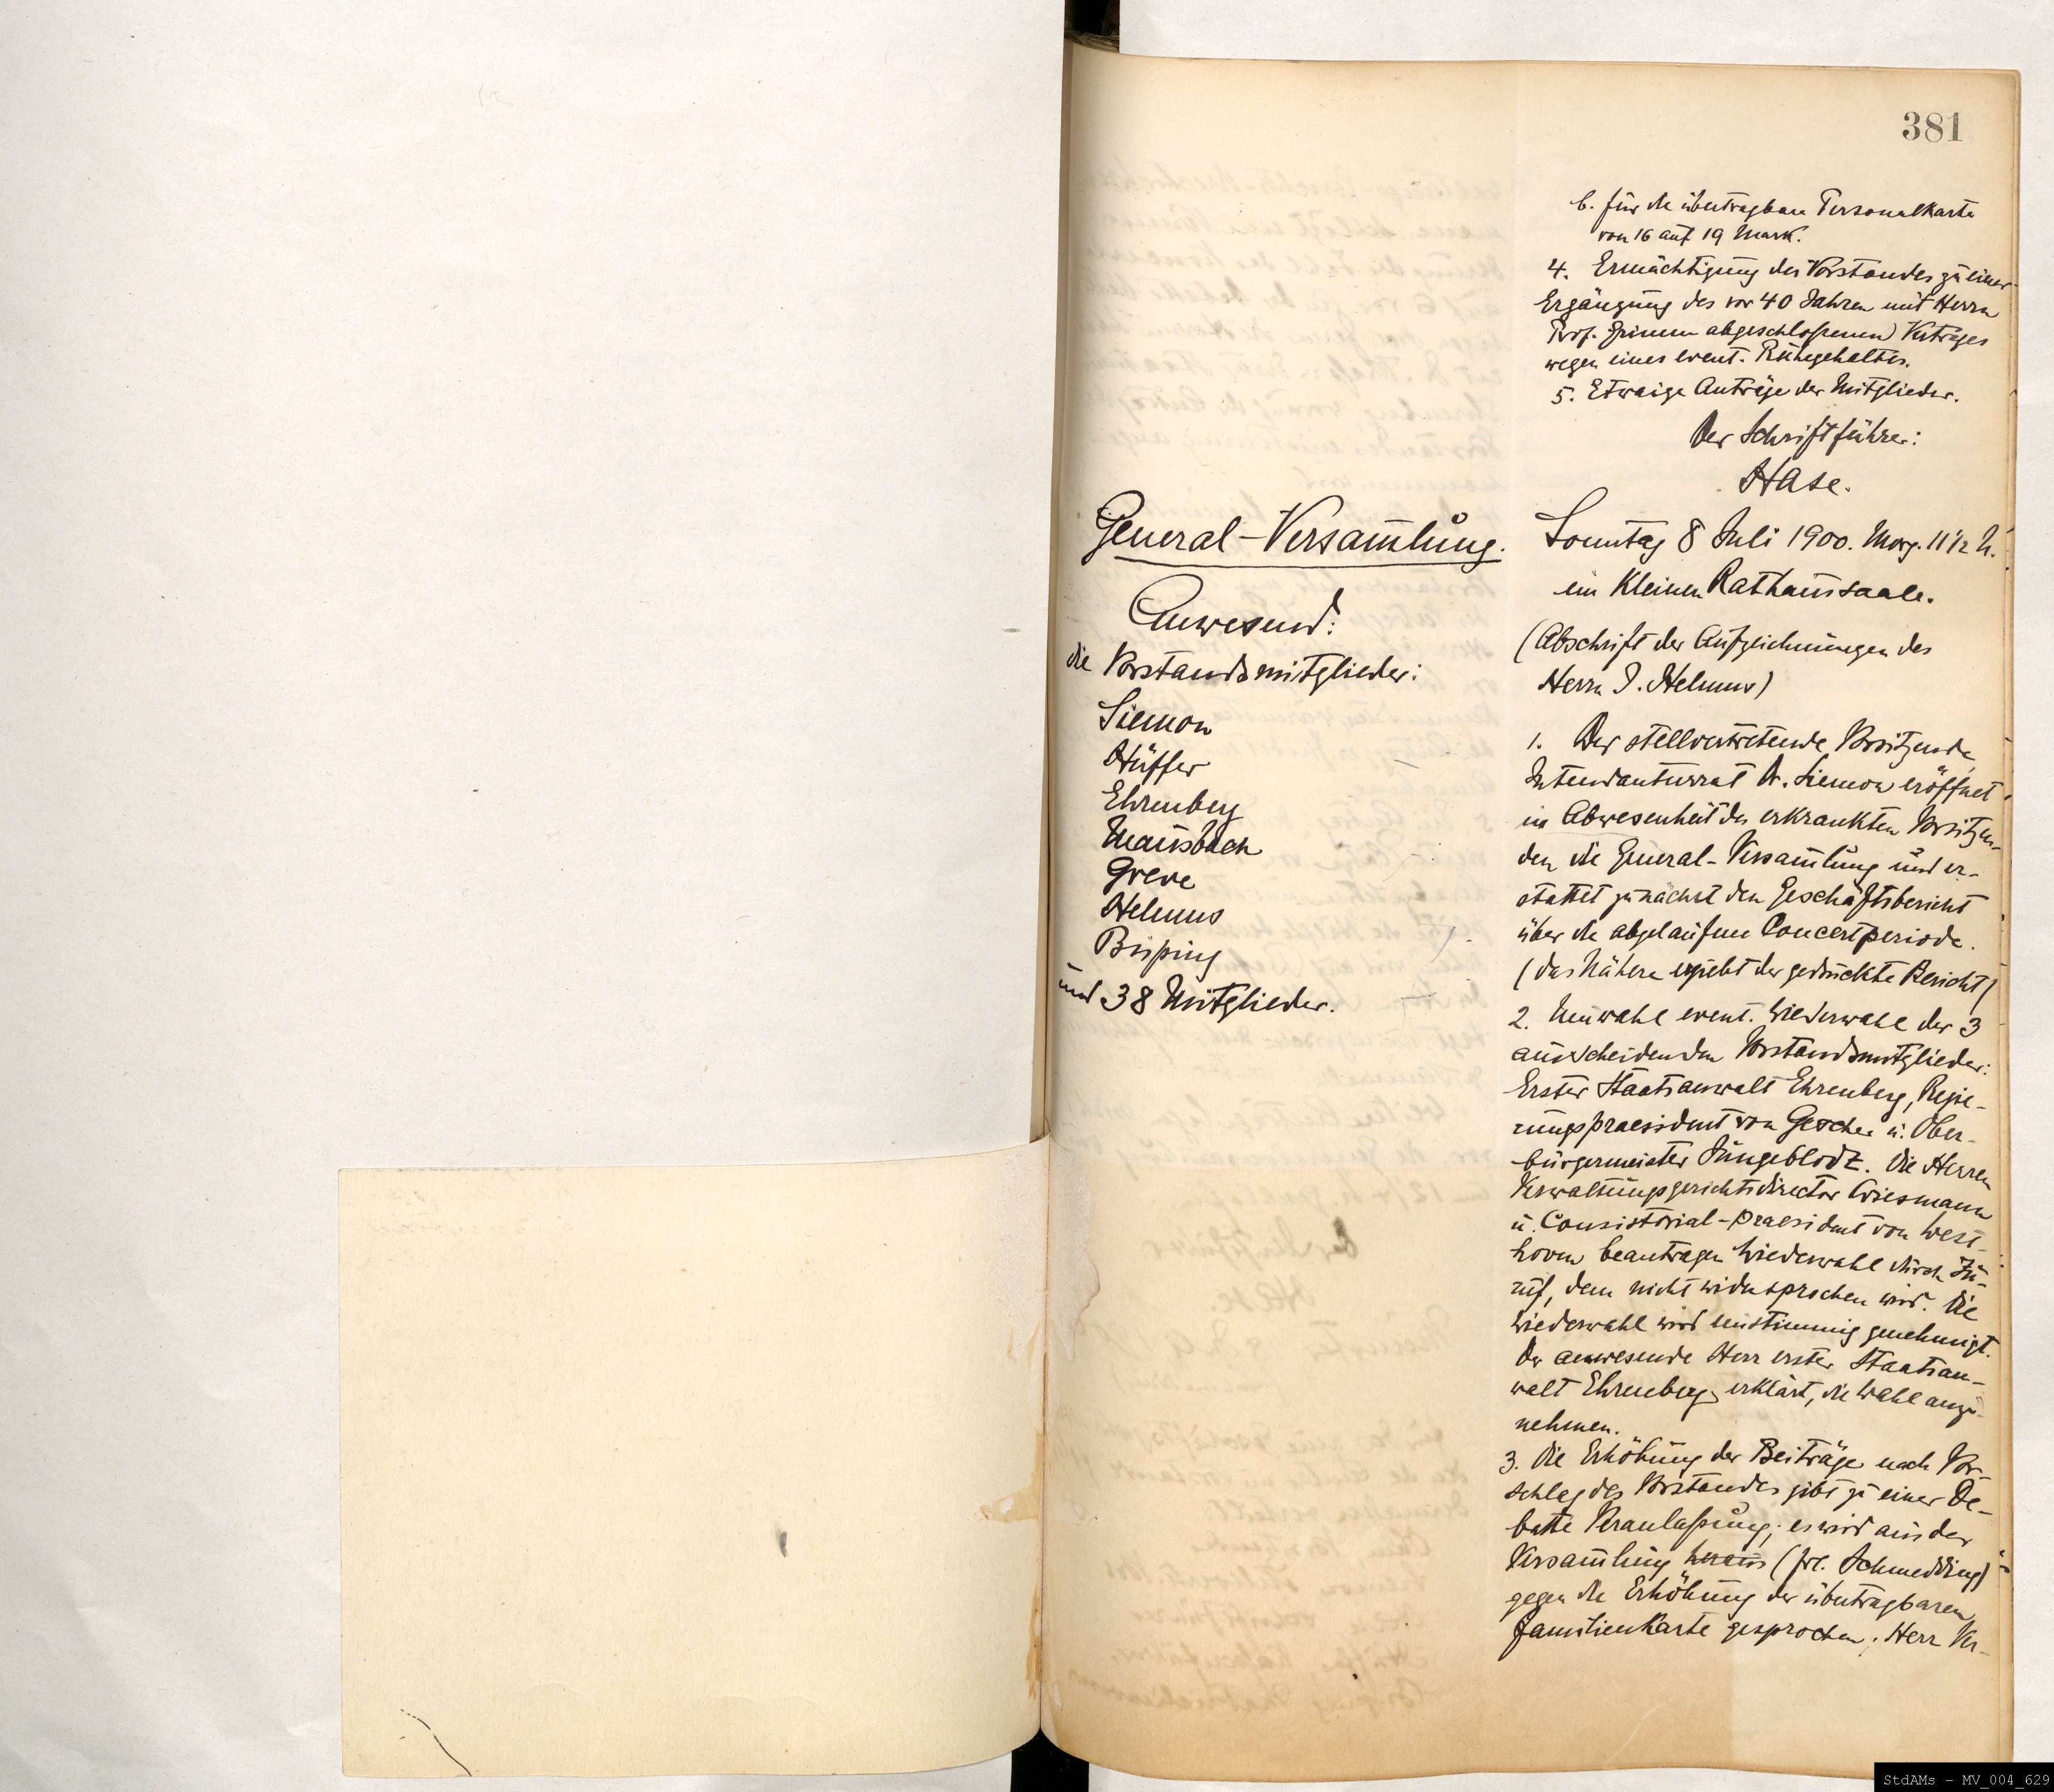 381
b. für die übertragbare Personalkarte
von 16 auf 19 Mark.
4. Ermächtigung des Vorstandes zu einer
Ergänzung des vor 40 Jahren mit Herrn
Prof. Grimm abgeschlossenen Vertrages
wegen eines event. Ruhegehaltes.
5. Etwaige Anträge der Mitglieder.
Der Schriftführer:
Hase.
General-Versam̅lung.
Anwesend:
die Vorstandsmitglieder:
Siemon
Hüffer
Ehrenberg
Mausbach
Greve
Helmus
Bisping
und 38 Mitglieder.
Sonntag 8 Juli 1900. Morg. 11 1/2 U.
im Kleinen Rathaussaale.
(Abschrift der Aufzeichnungen des
Herrn J. Helmus)
1. Der stellvertretende Vorsitzende,
Intendanturrat Dr. Siemon eröffnet
in Abwesenheit des erkrankten Vorsitzen-
den die General-Versam̅lung und er-
stattet zunächst den Geschäftsbericht
über die abgelaufene Concertperiode.
(das Nähere ergiebt der gedruckte Bericht)
2. Neuwahl event. Wiederwahl der 3
ausscheidenden Vorstandsmitglieder:
Erster Staatsanwalt Ehrenberg, Regie-
rungspraesident von Gescher u. Ober-
bürgermeister Jungeblodt. Die Herren
Verwaltungsgerichtsdirector Wiesmann
u. Consistorial-Praesident von West-
hoven beantragen Wiederwahl durch Zu-
ruf, dem nicht widersprochen wird. Die
Wiederwahl wird einstimmig genehmigt.
Der anwesende Herr erster Staatsan-
walt Ehrenberg erklärt, die Wahl anzu-
nehmen.
3. Die Erhöhung der Beiträge nach Vor-
schlag des Vorstandes gibt zu einer De-
batte Veranlassung; es wird aus der
Versam̅lung heraus (Frl. Schmedding)
gegen die Erhöhung der übertragbaren
Familienkarte gesprochen. Herr Ver-
StdAMs - MV_004_629